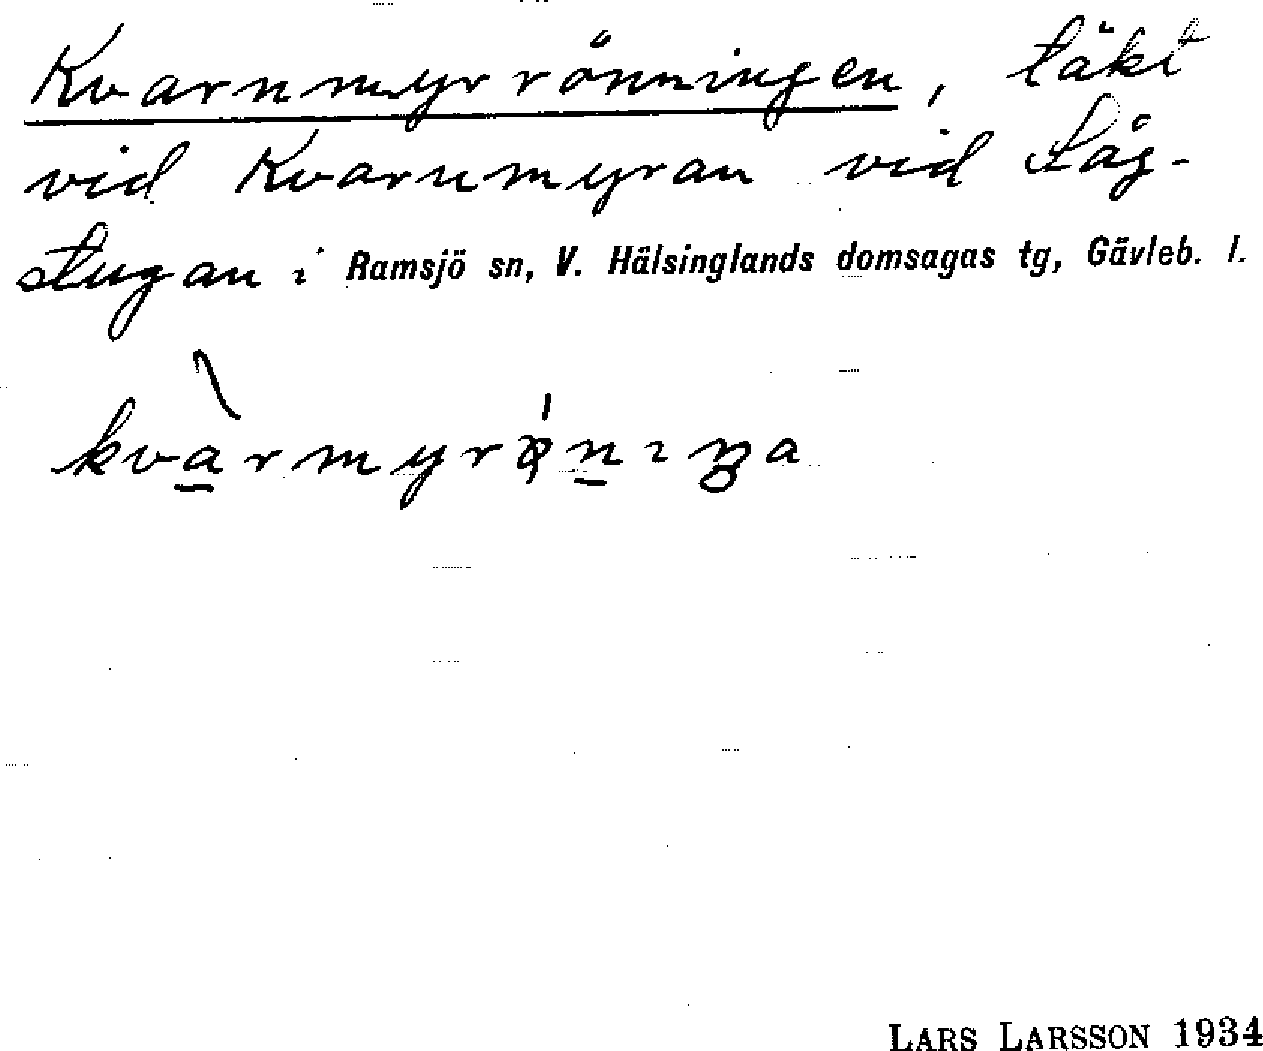 Kvarnmyrrönningen, täkt
vid Kvarnmyran vid Såg-
stugan i Ramsjö sn, V. Hälsinglands domsagas tg, Gävleb. l.
kvàrmyrǿnıŋa
LARS LARSSON 1934